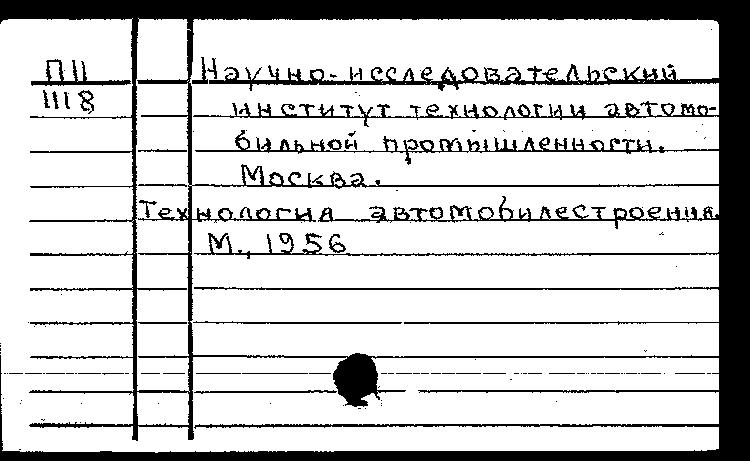 П11
1118
Научно-исследовательский
институт технологии автомо-
бильной промышленности.
Москва.
Технология автомобилестроения.
М., 1956